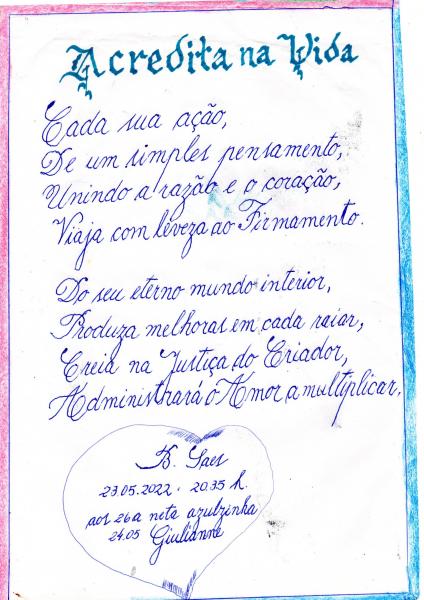 Acredita na Vida
Cada sua ação,
De um simples pensamento,
Unindo a razão e o coração,
Viaja com leveza ao Firmamento.
Do seu eterno mundo interior,
Produza melhoras em cada raiar,
Creia na Justiça do Criador,
Administrará o Amor a multiplicar,
B. Saes
23.05.2022 · 20.35 h.
aos 26 a neta azulzinha
24.05 Giulianne